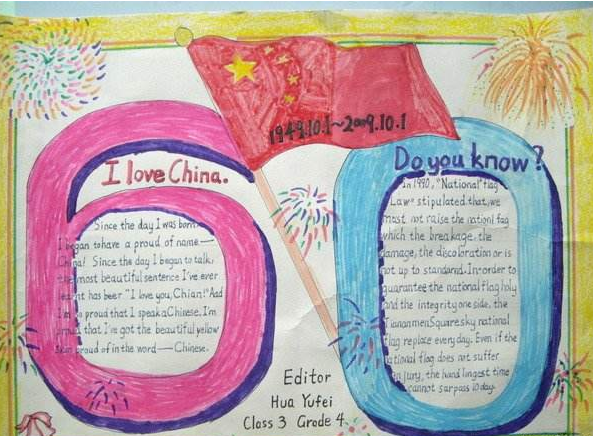 1949.10.1~2009.10.1
I love China.
Since the day I was born
I began to have a proud of name—
China! Since the day I began to talk,
the most beautiful sentence I've ever
learnt has beer "I love you, Chian!" And
I'm so proud that I speak a Chinese. I'm
proud that I've got the beautiful yellow
skin proud of in the word—Chinese.
Do you know?
In 1990, "National flag
Law" stipulated that, we
must not raise the nationl fag
which the breakage, the
damage, the discoloration or is
not up to standared. In order to
guarantee the national flag holy
and the integrity one side, the
TiananmenSquare sky national
flag replace every day. Even if the
national flag does not suffer
injury, the hand longest time
cannot surpass 10 day.
Editor
Hua Yufei
Class 3 Grade 4